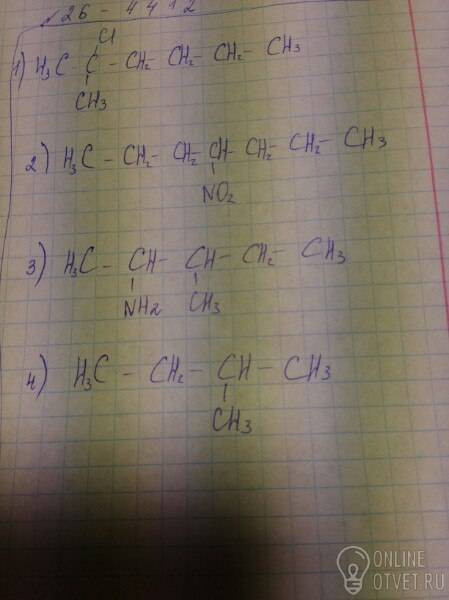 №26-4412
Cl
1) H₃C - C - CH₂ - CH₂ - CH₂ - CH3
CH3
2) H₃C - CH₂ - CH₂ - CH - CH₂ - CH₂ - CH3
NO₂
3) H₃C - CH - CH - CH₂ - CH3
NH2 CH3
4) H₃C - CH₂ - CH - CH3
CH3
ONLINE
OTVET.RU